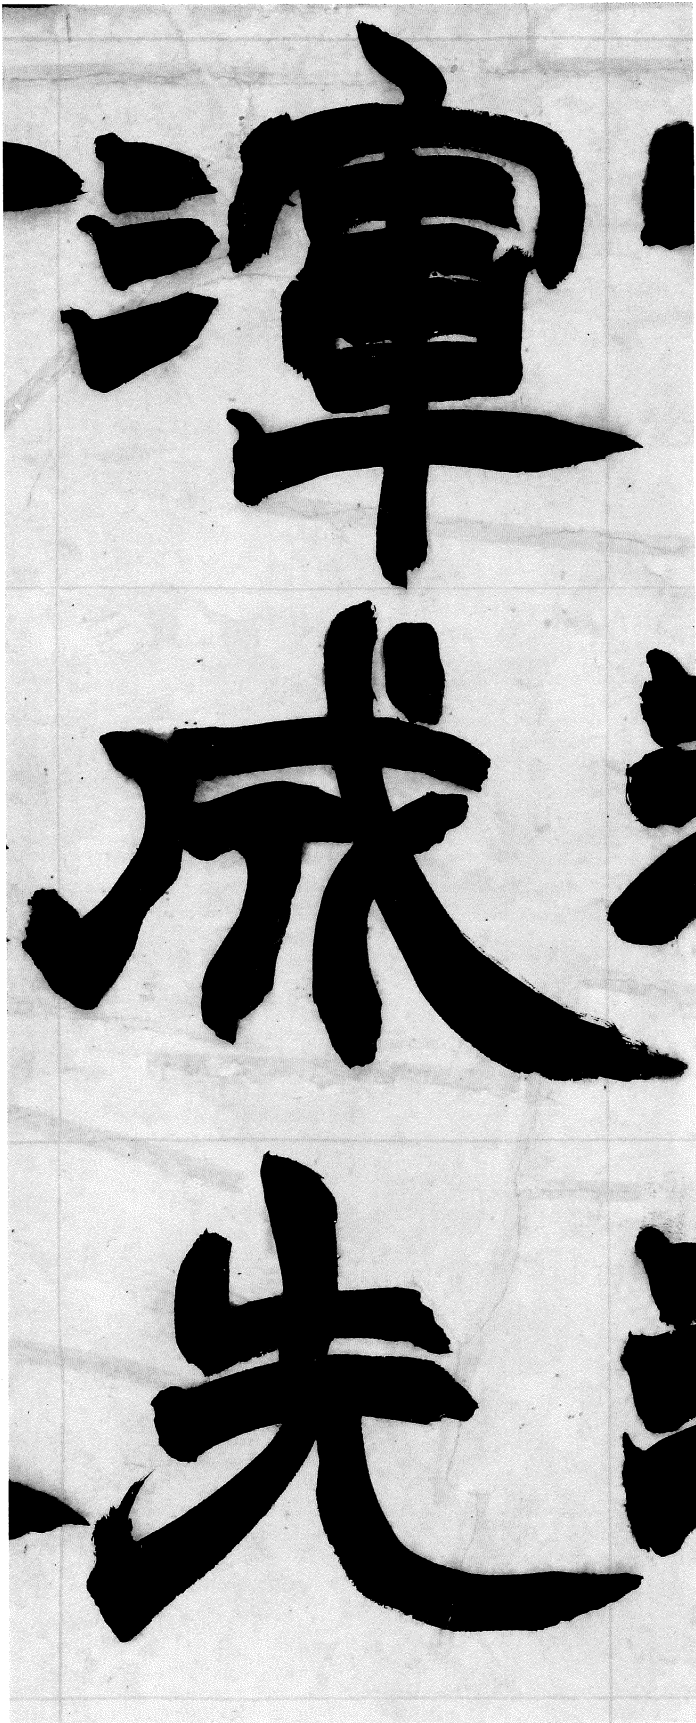 渾成先